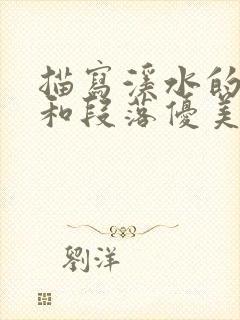 描寫溪水的
和段落優美
劉洋